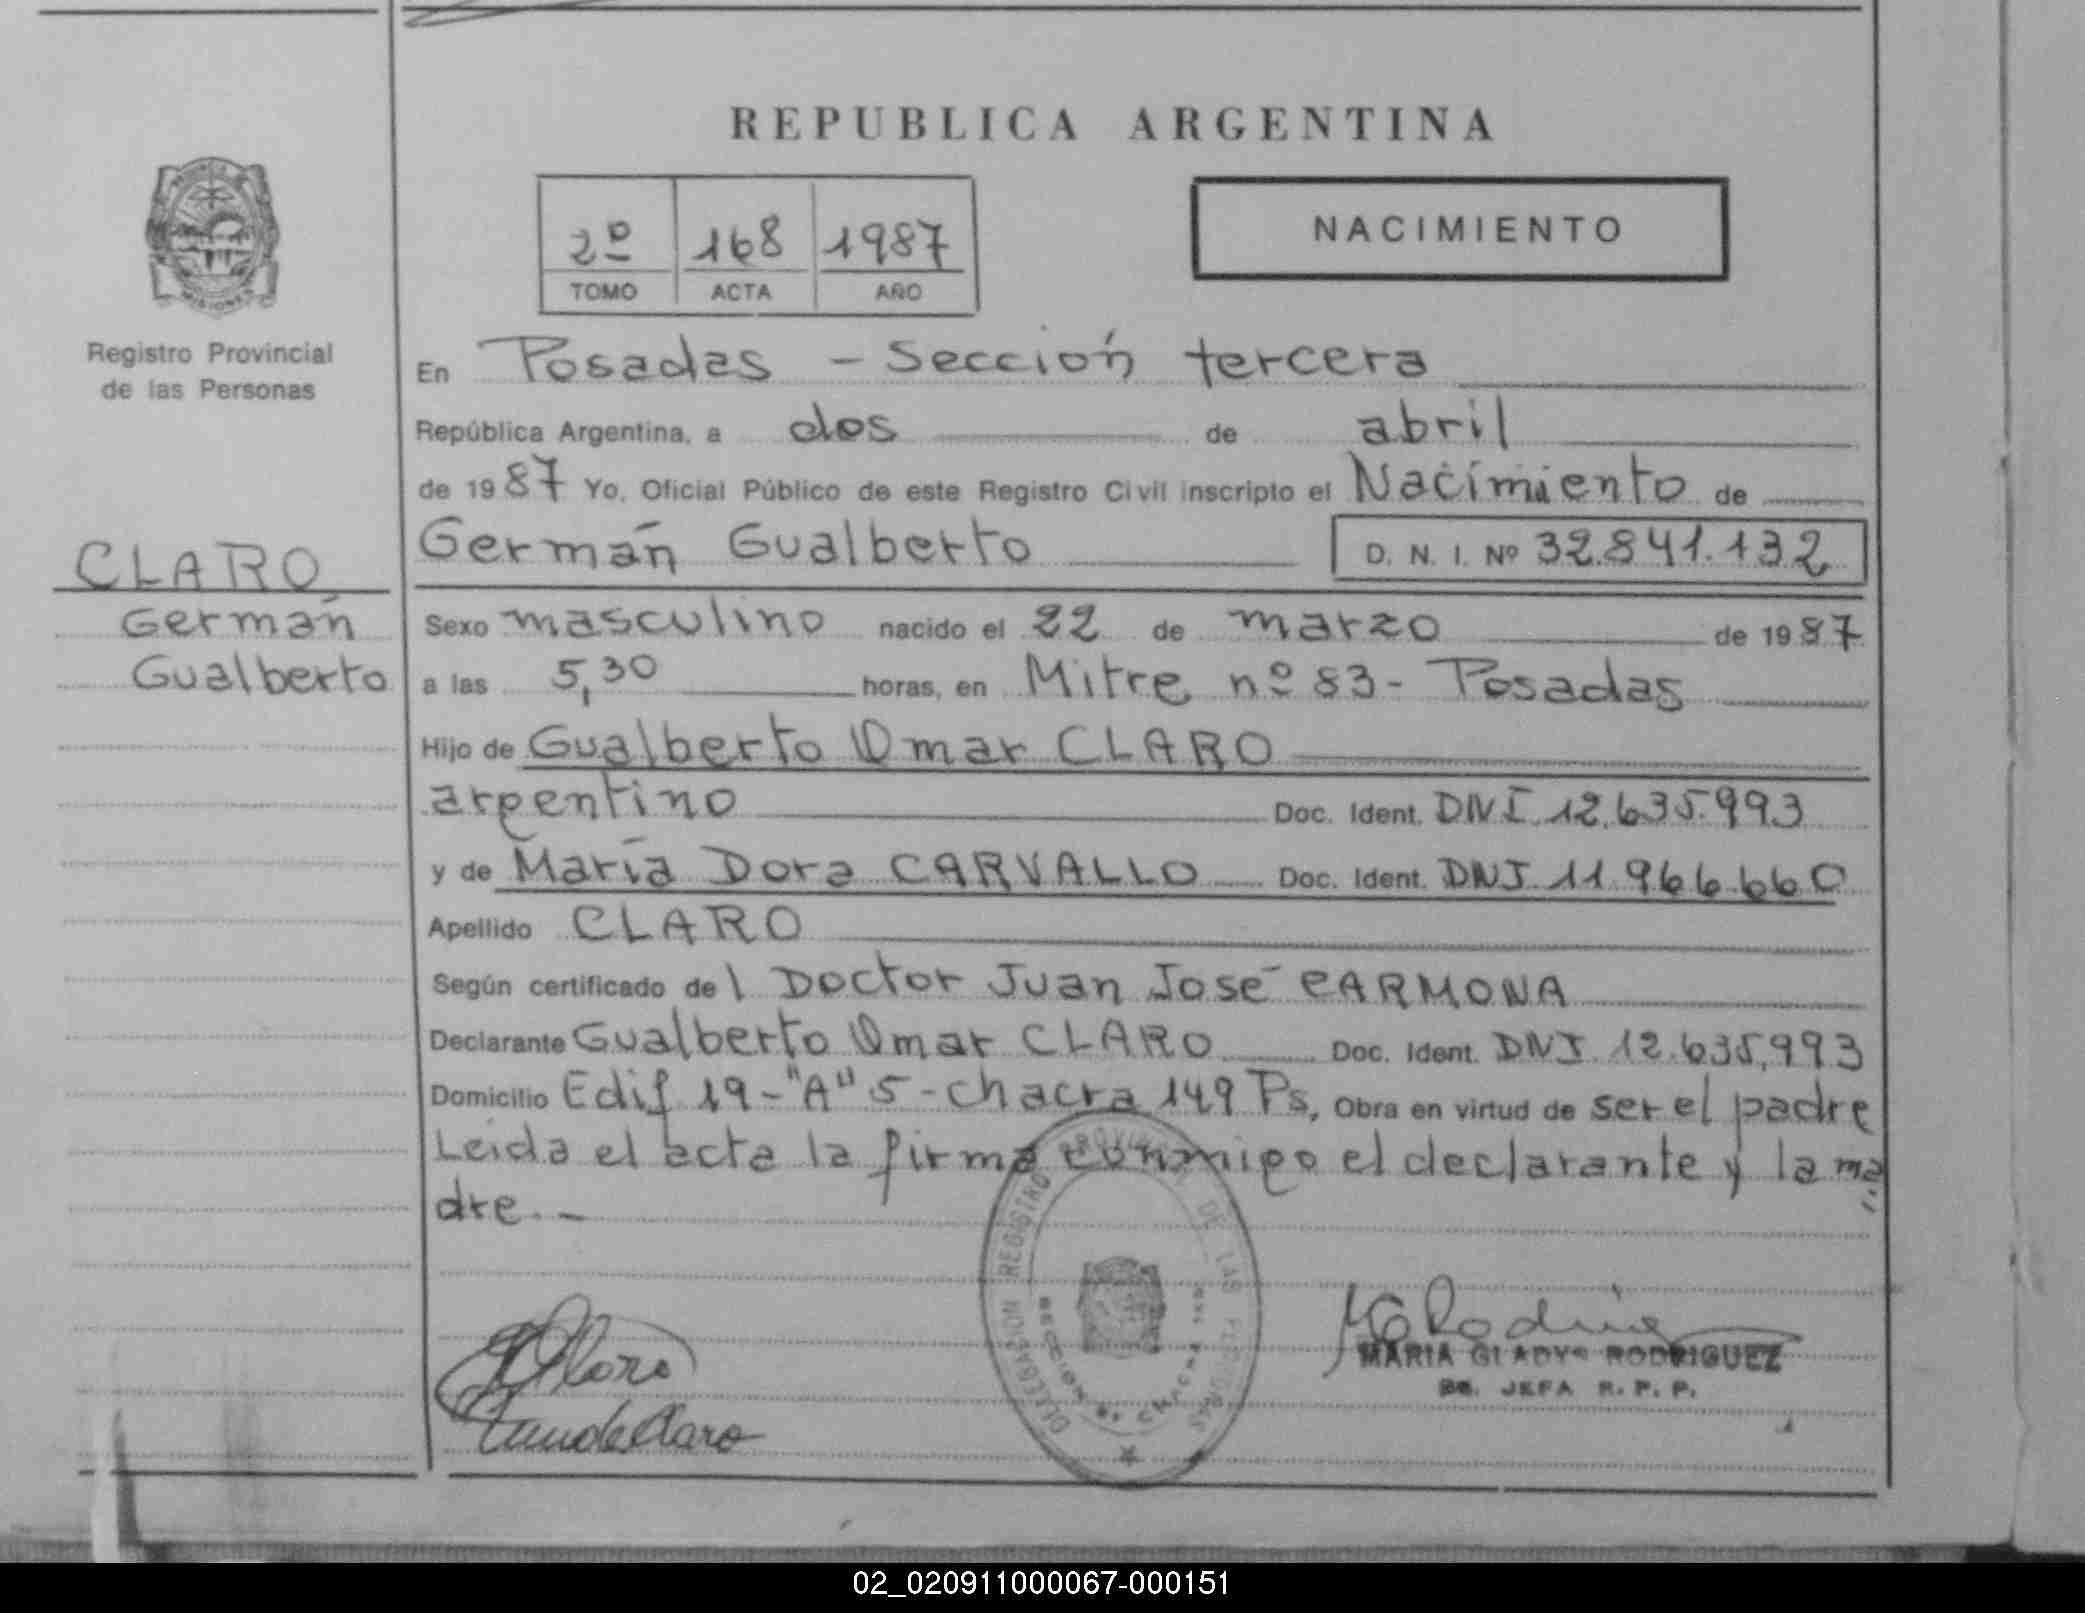 REPUBLICA ARGENTINA
2º 168 1987
TOMO ACTA AÑO
NACIMIENTO
MISIONES
Registro Provincial
de las Personas
CLARO
Germán
Gualberto
En Posadas - Sección tercera
República Argentina, a dos de abril
de 1987 Yo, Oficial Público de este Registro Civil inscripto el Nacimiento de
Germán Gualberto D. N. I. Nº 32.841.132
Sexo masculino nacido el 22 de marzo de 1987
a las 5,30 horas, en Mitre nº 83 - Posadas
Hijo de Gualberto Omar CLARO
argentino Doc. Ident. DNI 12.635.993
y de María Dora CARVALLO Doc. Ident. DNI 11.966.660
Apellido CLARO
Según certificado del Doctor Juan José CARMONA
Declarante Gualberto Omar CLARO Doc. Ident. DNI 12.635.993
Domicilio Edif 19-"A" 5 - chacra 149 Ps, Obra en virtud de ser el padre
Leida el acta la firma conmigo el declarante y la ma
dre.-
DELEGACION REGISTRO PROVINCIAL DE LAS PERSONAS
MARIA GLADYS RODRIGUEZ
JEFA R. P. P.
02_020911000067-000151